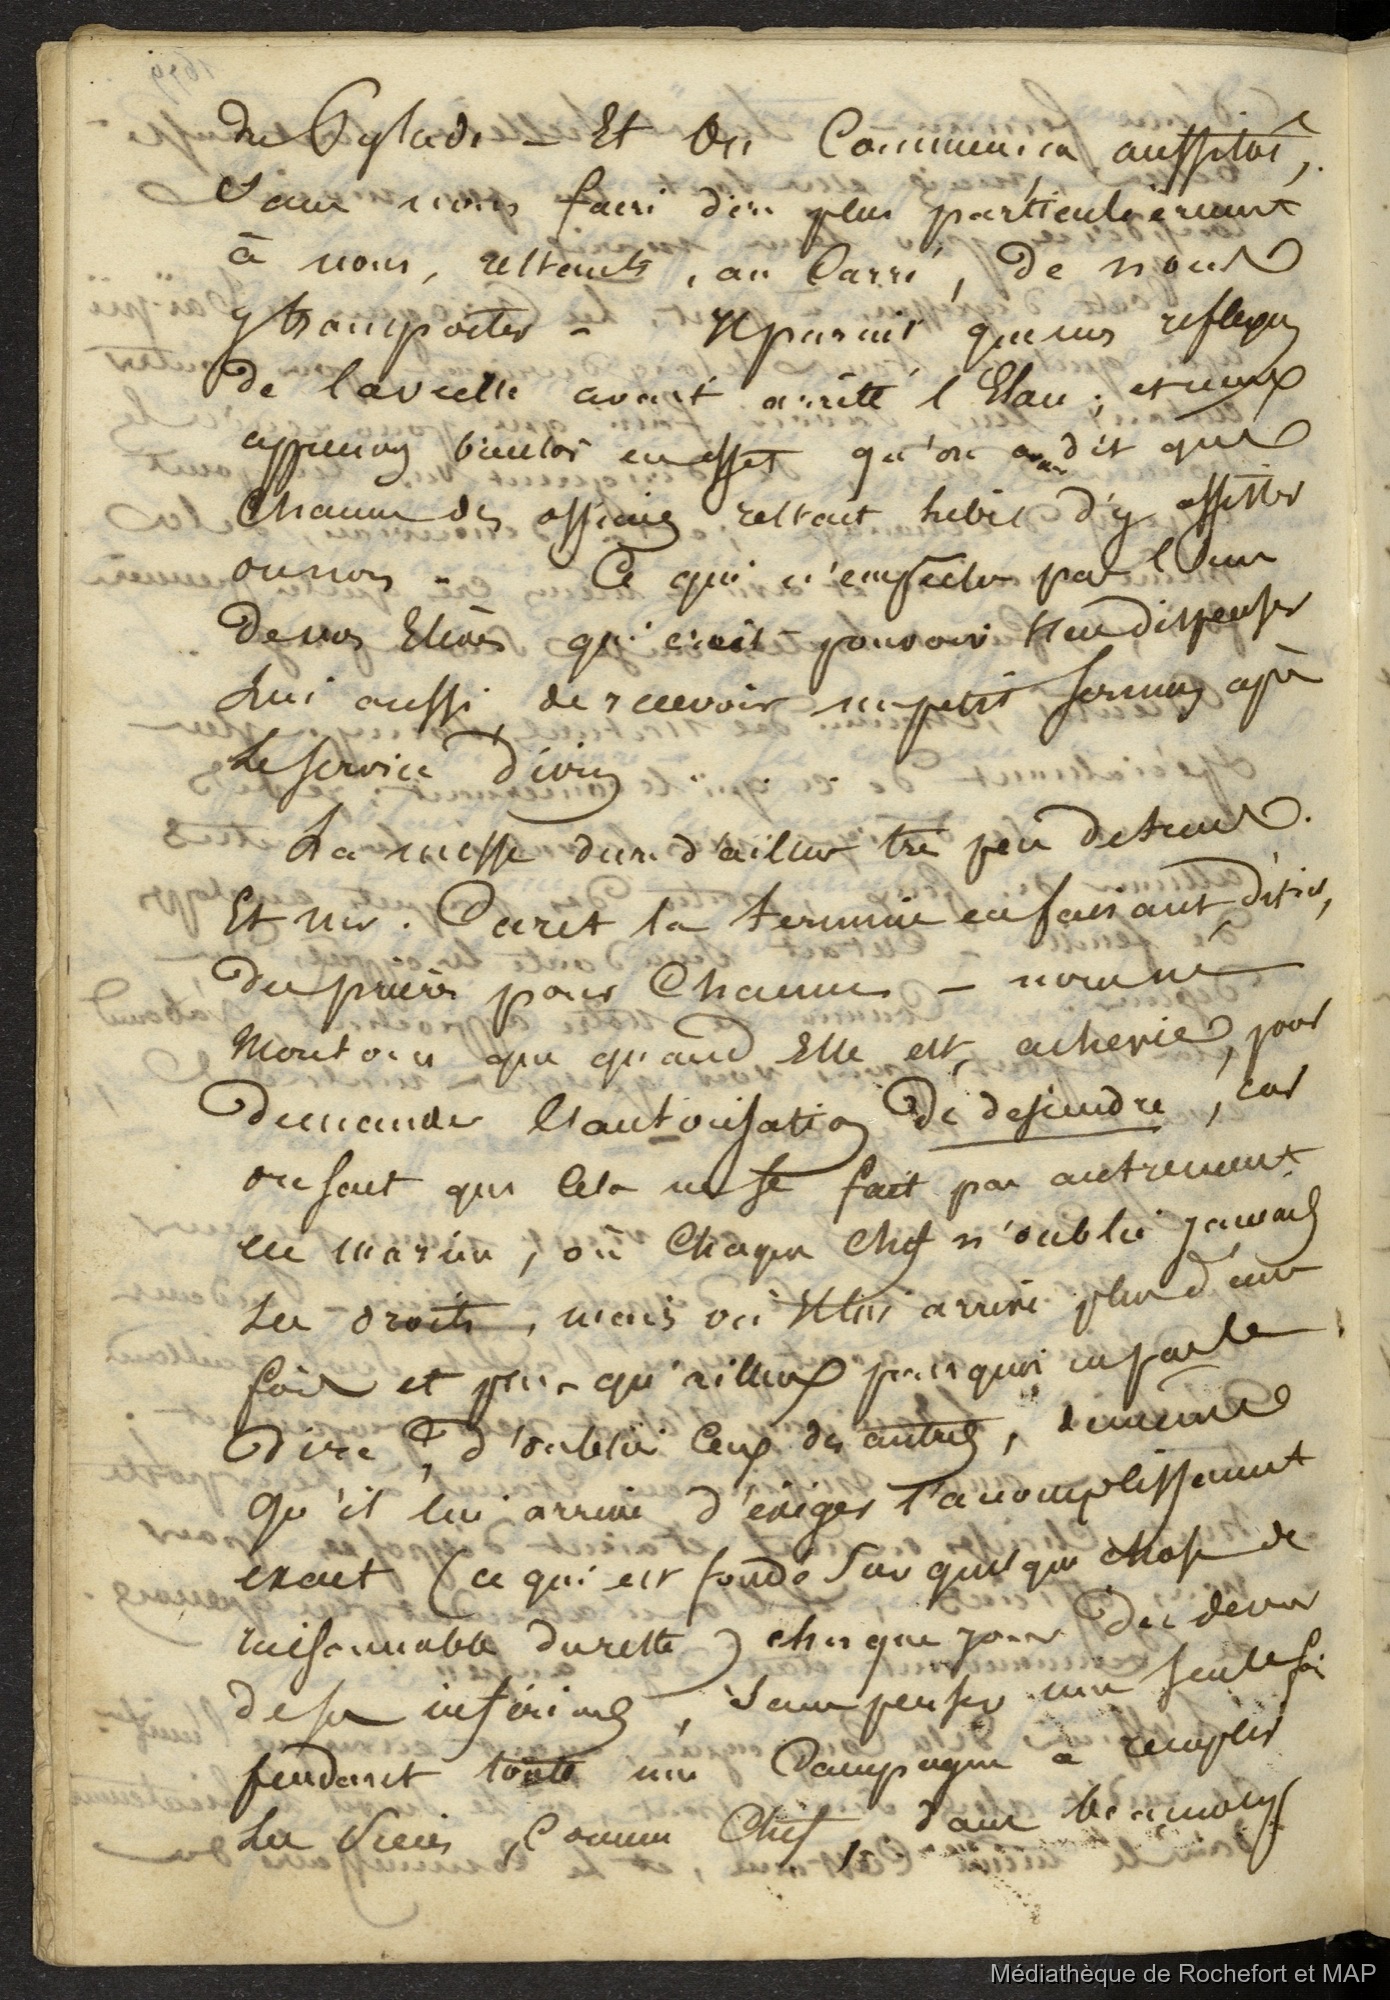 du Pylade - Et On Commença aussitôt,
Sans nous faire dire plus particulièrement
à nous, restants, au Carré, de nous
y transporter - Il parait que mes reflexions
De la veille avait arrêté l'Elan; et nous
apprenons bientôt en effet qu'on avait dit que
Chacun des officiers restait libre d'y assister
ou non - Ce qui n'empêcha pas l'un
De nos Elèves qui croit pouvoir s'en dispenser
Lui aussi, de recevoir un petit sermon après
Le service Divin
La messe dura d'ailleurs très peu de temps.
Et Mr. Caret la termine en faisant, dit-on,
Des prières pour Chacun - nous ne
Montons que quand Elle est achevée, pour
Demander L'autorisation De desendre, car
on sait que Cela ne se fait pas autrement
en marine, où Chaque Chef n'oublie jamais
Ses droits, mais où Il lui arrive plus d'une
fois et plus qu'ailleurs pourquoi ne pas le
Dire, d'oublier Ceux des autres, de même
Qu'il lui arrive d'exiger l'acomplissement
exact (ce qui est fondé Sur quelque chose de
raisonnable du reste) chaque jour Des devoirs
De ses inférieurs, Sans penser une seule fois
pendant toute une Campagne à remplir
Les Siens, Comme Chef, dans beaucoup
Médiathèque de Rochefort et MAP